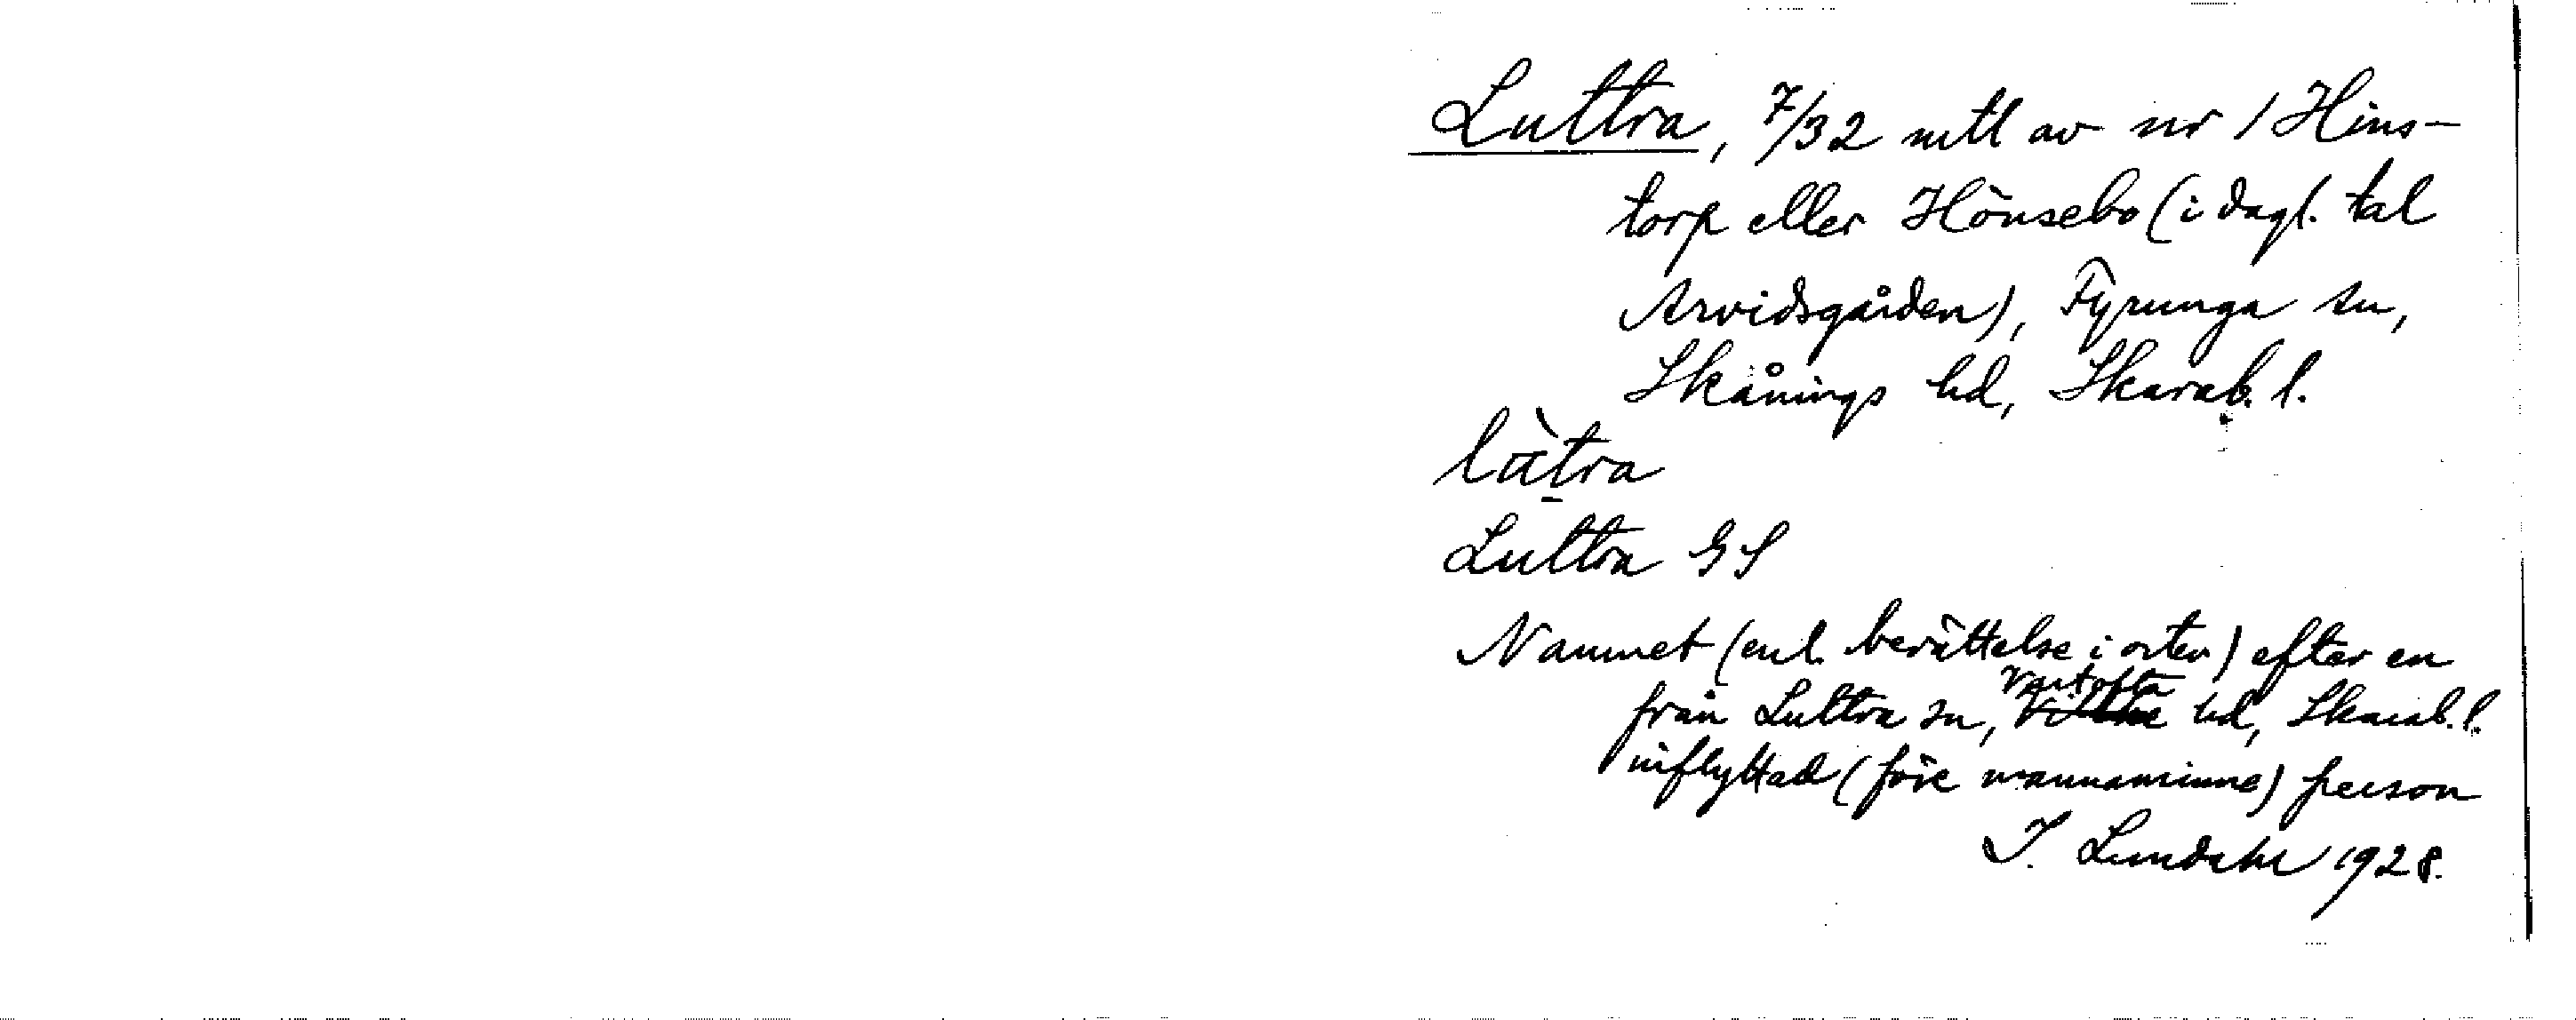 Luttra, 7/32 mtl av nr 1 Hins-
torp eller Hönsebo (i dagl. tal
Arvidsgården), Fyrunga sn,
Skånings hd, Skarab. l.
lùtra
Luttra GS
Namnet (enl. berättelse i orten) efter en
från Luttra sn, Vartofta hd, Skarab. l.
inflyttad (före mannaminne) person
I. Lundahl 1928.